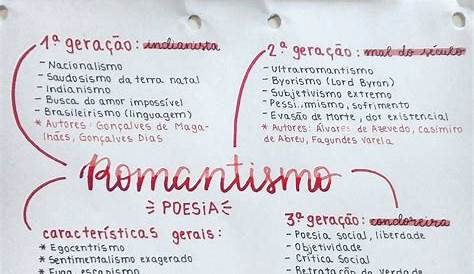 1ª geração: indianista
- Nacionalismo
- Saudosismo da terra natal
- Indianismo
- Busca do amor impossível
- Brasileirismo (linguagem)
* Autores: Gonçalves de Maga-
lhães, Gonçalves Dias
2ª geração: mal do século
- Ultrarromantismo
- Byorismo (Lord Byron)
- Subjetivismo extremo
- Pessi..mismo, sofrimento
- Evasão de Morte, dor existencial
* Autores: Álvares de Azevedo, Casimiro
de Abreu, Fagundes varela
Romantismo
POESIA
características gerais:
* Egocentrismo
* Sentimentalismo exagerado
* Fuga, escapismo
3ª geração: condoreira
- Poesia social, liberdade
- Objetividade
- Crítica Social
- Retratação da verdade